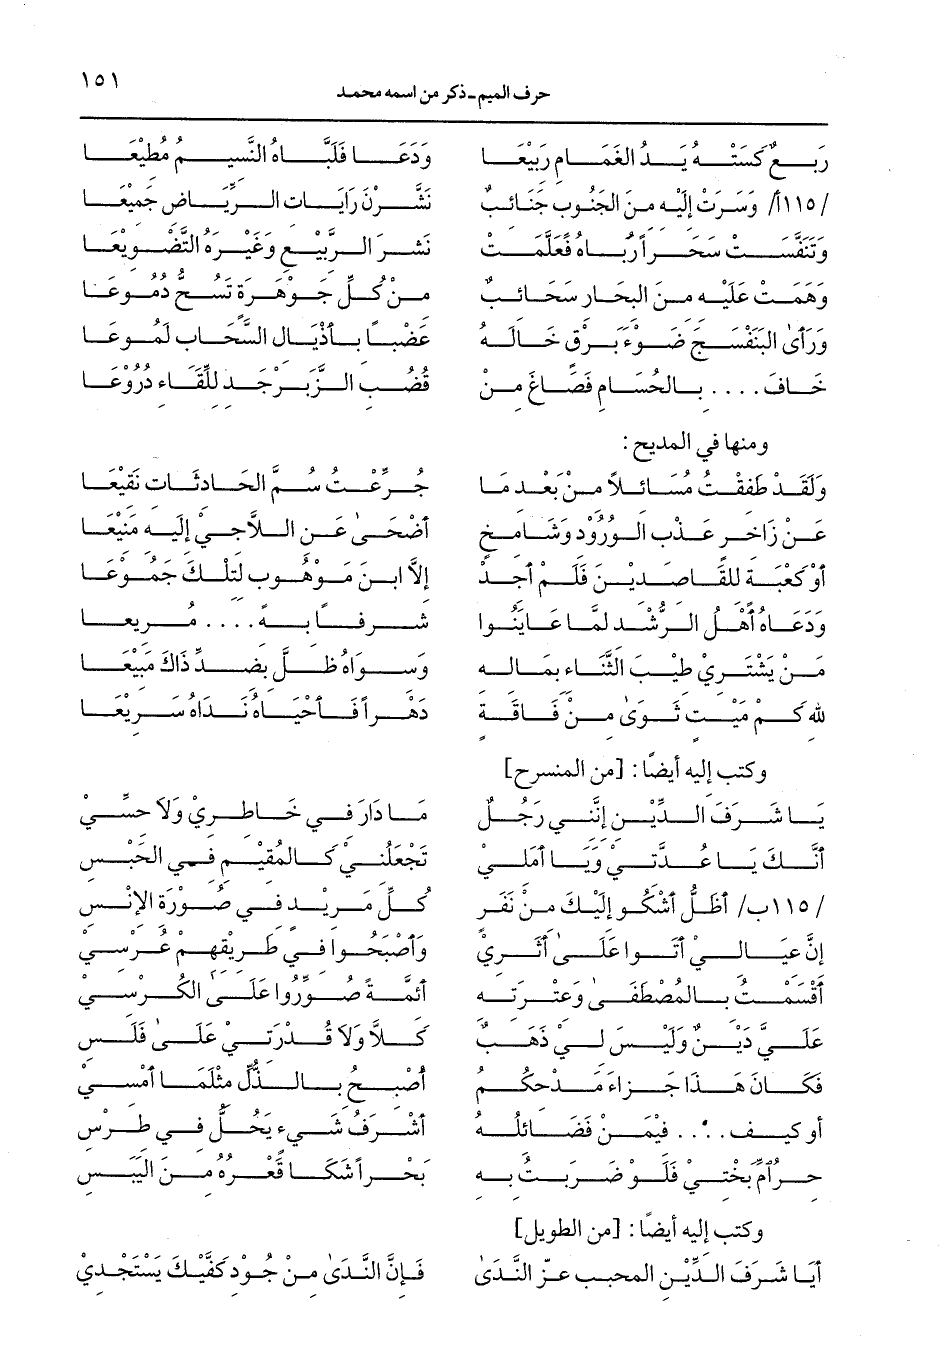 حرف الميم - ذكر من اسمه محمد ١٥١
رَبْعٌ كَسَتْهُ يَدُ الغَمَامِ رَبِيْعَا وَدَعَا فَلَبَّاهُ النَّسِيْمُ مُطِيْعَا
/١١٥أ/ وَسَرَتْ إِلَيْهِ مِنَ الجَنُوبِ جَنَائِبٌ نَشَّرْنَ رَايَاتِ الرِّيَاضِ جَمِيْعَا
وَتَنَفَّسَتْ سَحَراً رُبَاهُ فَعَلَّمَتْ نَشْرَ الرَّبِيْعِ وَغَيْرَهُ التَّضْوِيْعَا
وَهَمَتْ عَلَيْهِ مِنَ البِحَارِ سَحَائِبٌ مِنْ كُلِّ جَوْهَرَةٍ تَسُحُّ دُمُوعَا
وَرَأَى البَنَفْسَجُ ضَوْءَ بَرْقٍ خَالَهُ عَضْباً بِأَذْيَالِ السَّحَابِ لَمُوعَا
خَافَ .... بِالحُسَامِ فَصَاغَ مِنْ قُضُبِ الزَّبَرْجَدِ لِلِّقَاءِ دُرُوْعَا
ومنها في المديح:
وَلَقَدْ طَفِقْتُ مُسَائِلاً مِنْ بَعْدِ مَا جُرِّعْتُ سُمَّ الحَادِثَاتِ نَقِيْعَا
عَنْ زَاخِرٍ عَذْبِ الوُرُوْدِ وَشَامِخٍ أَضْحَى عَنِ اللاَّجِي إِلَيْهِ مَنِيْعَا
أَوْ كَعْبَةٍ لِلْقَاصِدِيْنَ فَلَمْ أَجِدْ إِلاَّ ابْنَ مَوْهُوبٍ لِتِلْكَ جَمُوعَا
وَدَعَاهُ أَهْلُ الرُّشْدِ لَمَّا عَايَنُوا شَرَفاً بِهِ .... مَرِيعَا
مَنْ يَشْتَرِيْ طِيْبَ الثَّنَاءِ بِمَالِهِ وَسِوَاهُ ظَلَّ بِضِدِّ ذَاكَ مَبِيْعَا
للهِ كَمْ مَيْتٍ ثَوَى مِنْ فَاقَةٍ دَهْراً فَأَحْيَاهُ نَدَاهُ سَرِيعَا
وكتب إليه أيضاً: [من المنسرح]
يَا شَرَفَ الدِّيْنِ إِنَّنِي رَجُلٌ مَا دَارَ فِي خَاطِرِيْ وَلاَ حِسِّيْ
أَنَّكَ يَا عُدَّتِيْ وَيَا أَمَلِيْ تَجْعَلُنِيْ كَالمُقِيْمِ فِي الحَبْسِ
/١١٥ب/ أَظَلُّ أَشْكُو إِلَيْكَ مِنْ نَفَرٍ كُلِّ مَرِيْدٍ فِي صُوْرَةِ الإِنْسِ
إِنَّ عِيَالِيْ أَتَوا عَلَى أَثَرِيْ وَأَصْبَحُوا فِي طَرِيْقِهِمْ عُرْسِيْ
أَقْسَمْتُ بِالمُصْطَفَى وَعِتْرَتِهِ أَئِمَّةٍ صُوِّرُوا عَلَى الكُرْسِيْ
عَلَيَّ دَيْنٌ وَلَيْسَ لِيْ ذَهَبٌ كَلاَّ وَلاَ قُدْرَتِيْ عَلَى فَلْسِ
فَكَانَ هَذَا جَزَاءَ مَدْحِكُمُ أُصْبِحُ بِالذُّلِّ مِثْلَمَا أُمْسِيْ
أو كيف .... فِيْمَنْ فَضَائِلُهُ أَشْرَفُ شَيْءٍ يَحُلُّ فِي طِرْسِ
حِرْ أُمِّ بَخْتِي فَلَوْ ضَرَبْتُ بِهِ بَحْراً شَكَا قَعْرُهُ مِنَ اليَبْسِ
وكتب إليه أيضاً: [من الطويل]
أَيَا شَرَفَ الدِّيْنِ المحبب عزّ النَّدَى فَإِنَّ النَّدَى مِنْ جُودِ كَفَّيْكَ يَسْتَجْدِيْ